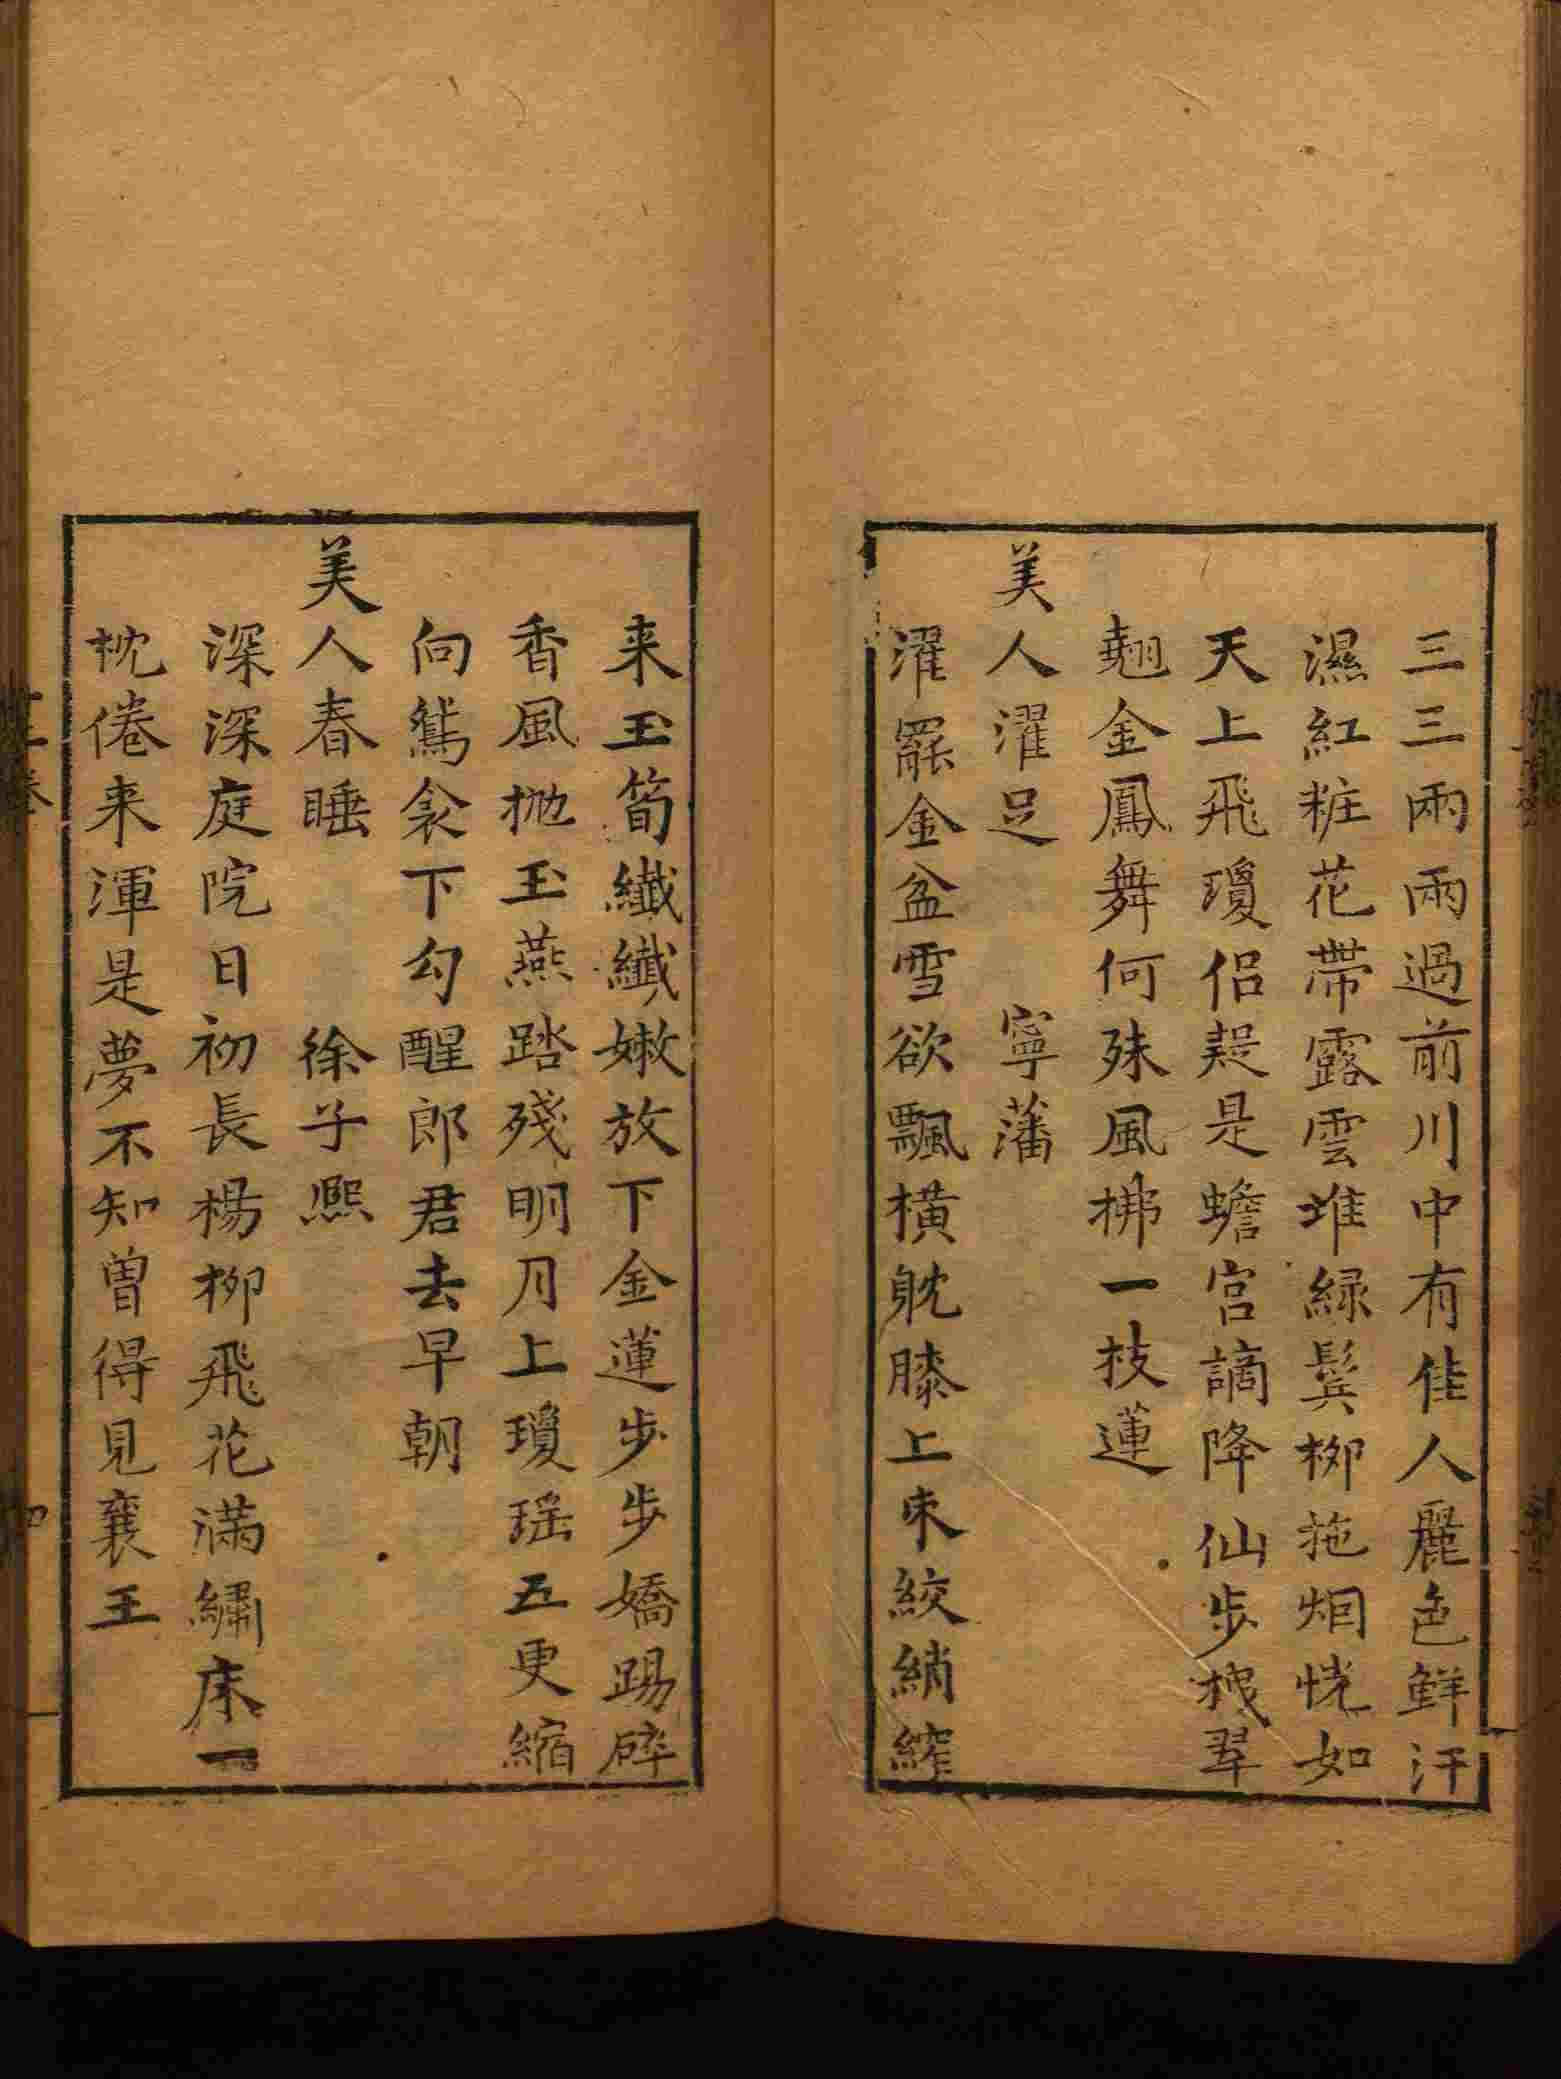 三三兩兩過前川中有佳人麗色鮮汗
濕紅粧花帶露雲堆緑鬂柳拖烟恍如
天上飛瓊侣疑是蟾宮謫降仙步拽翠
翹金鳳舞何殊風拂一技蓮
美人濯足 寧藩
濯罷金盆雪欲飄橫躭膝上束絞綃𦂃
来玉筍纖纖嫩放下金蓮步步嬌踢碎
香風抛玉燕踏殘明月上瓊瑶五更縮
向鴛衾下勾醒郎君去早朝
美人春睡 徐子熙
深深庭院日初長楊柳飛花滿繡床一
枕倦来渾是夢不知曾得見襄王